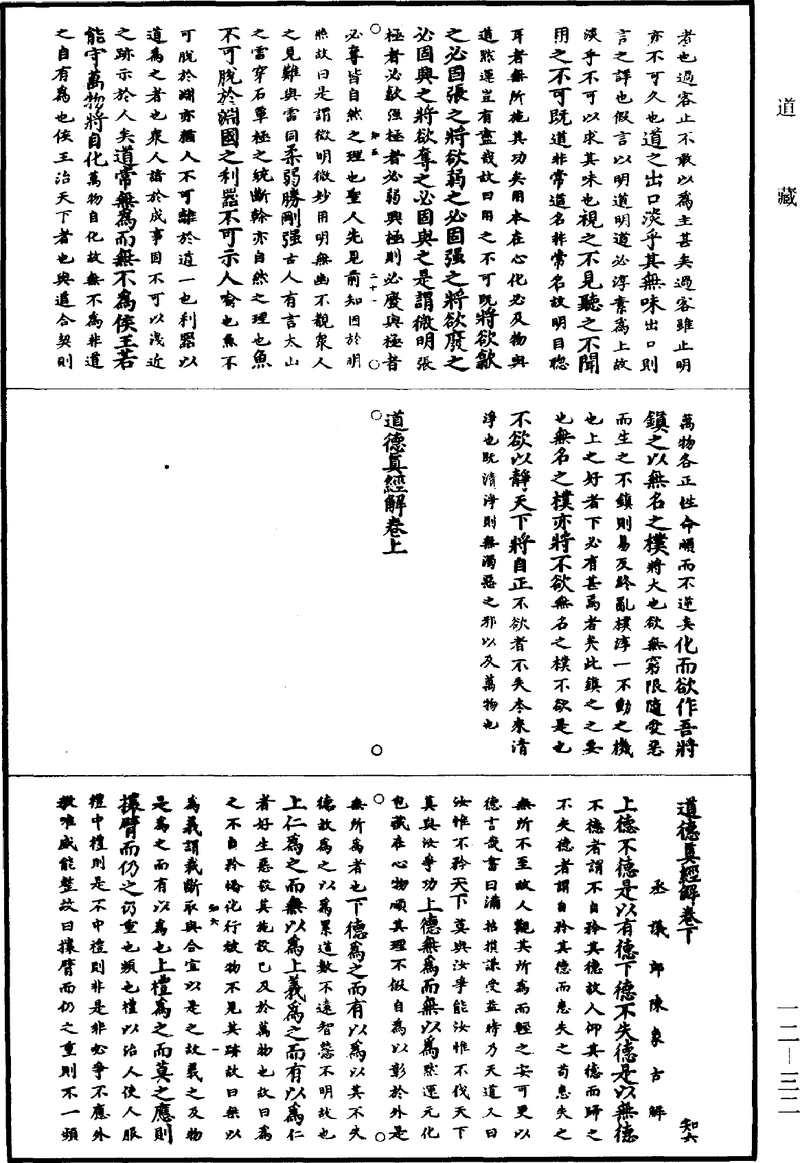 道藏
者也過客止不敢以爲主甚矣過客雖止明
亦不可久也道之出口淡乎其無味出口則
言之譯也假言以明道明道必淳素爲上故
淡乎不可以求其味也視之不見聽之不聞
用之不可既道非常道名非常名故明目聰
耳者無所施其功矣用本在心化必及物與
道默運豈有盡哉故曰用之不可既將欲歙
之必固張之將欲弱之必固强之將欲廢之
必固興之將欲奪之必固與之是謂微明張
極者必歙强極者必弱興極則必廢與極者
知五
二十一
必奪皆自然之理也聖人先見前知因於明
照故曰是謂微明微妙用明無幽不覩衆人
之見難與雷同柔弱勝剛强古人有言太山
之霤穿石單極之綆斷幹亦自然之理也魚
不可脫於淵國之利器不可示人喻也魚不
可脫於淵亦猶人不可離於道一也利器以
道爲之者也衆人諸於成事因不可以淺近
之跡示於人矣道常無爲而無不爲侯王若
能守萬物將自化萬物自化故無不爲非道
之自有爲也侯王治天下者也與道合契則
萬物各正性命順而不逆矣化而欲作吾將
鎮之以無名之樸將大也欲無窮限隨愛惡
而生之不鎮則易及終亂樸淳一不動之機
也上之好者下必有甚焉者矣此鎮之之要
也無名之樸亦將不欲無名之樸不欲是也
不欲以靜天下將自正不欲者不失本來清
淨也既清淨則無濁惡之邪以及萬物也
道德真經解卷上
道德真經解卷下
知六
丞議郎陳象古解
上德不德是以有德下德不失德是以無德
不德者謂不自矜其德故人仰其德而歸之
不失德者謂自矜其德而患失之苟患失之
無所不至故人觀其所爲而輕之安可更以
德言哉書曰滿招損謙受益時乃天道又曰
汝惟不矜天下莫與汝爭能汝惟不伐天下
莫與汝爭功上德無爲而無以爲默運元化
包藏在心物順其理不假自爲以彰於外是
無所爲者也下德爲之而有以爲以其不失
德故爲之以爲累道數不遠智慧不明故也
上仁爲之而無以爲上義爲之而有以爲仁
者好生惡殺其施設已及於萬物也故曰爲
之不自矜恃化行被物不見其跡故曰無以
知六
一
爲義謂裁斷取與合宜以是之故義之及物
是爲之而有以爲也上禮爲之而莫之應則
攘臂而仍之仍重也頻也禮以治人使人服
禮中禮則是不中禮則非是非必爭不應外
教唯威能整故曰攘臂而仍之重則不一頻
一二—三二